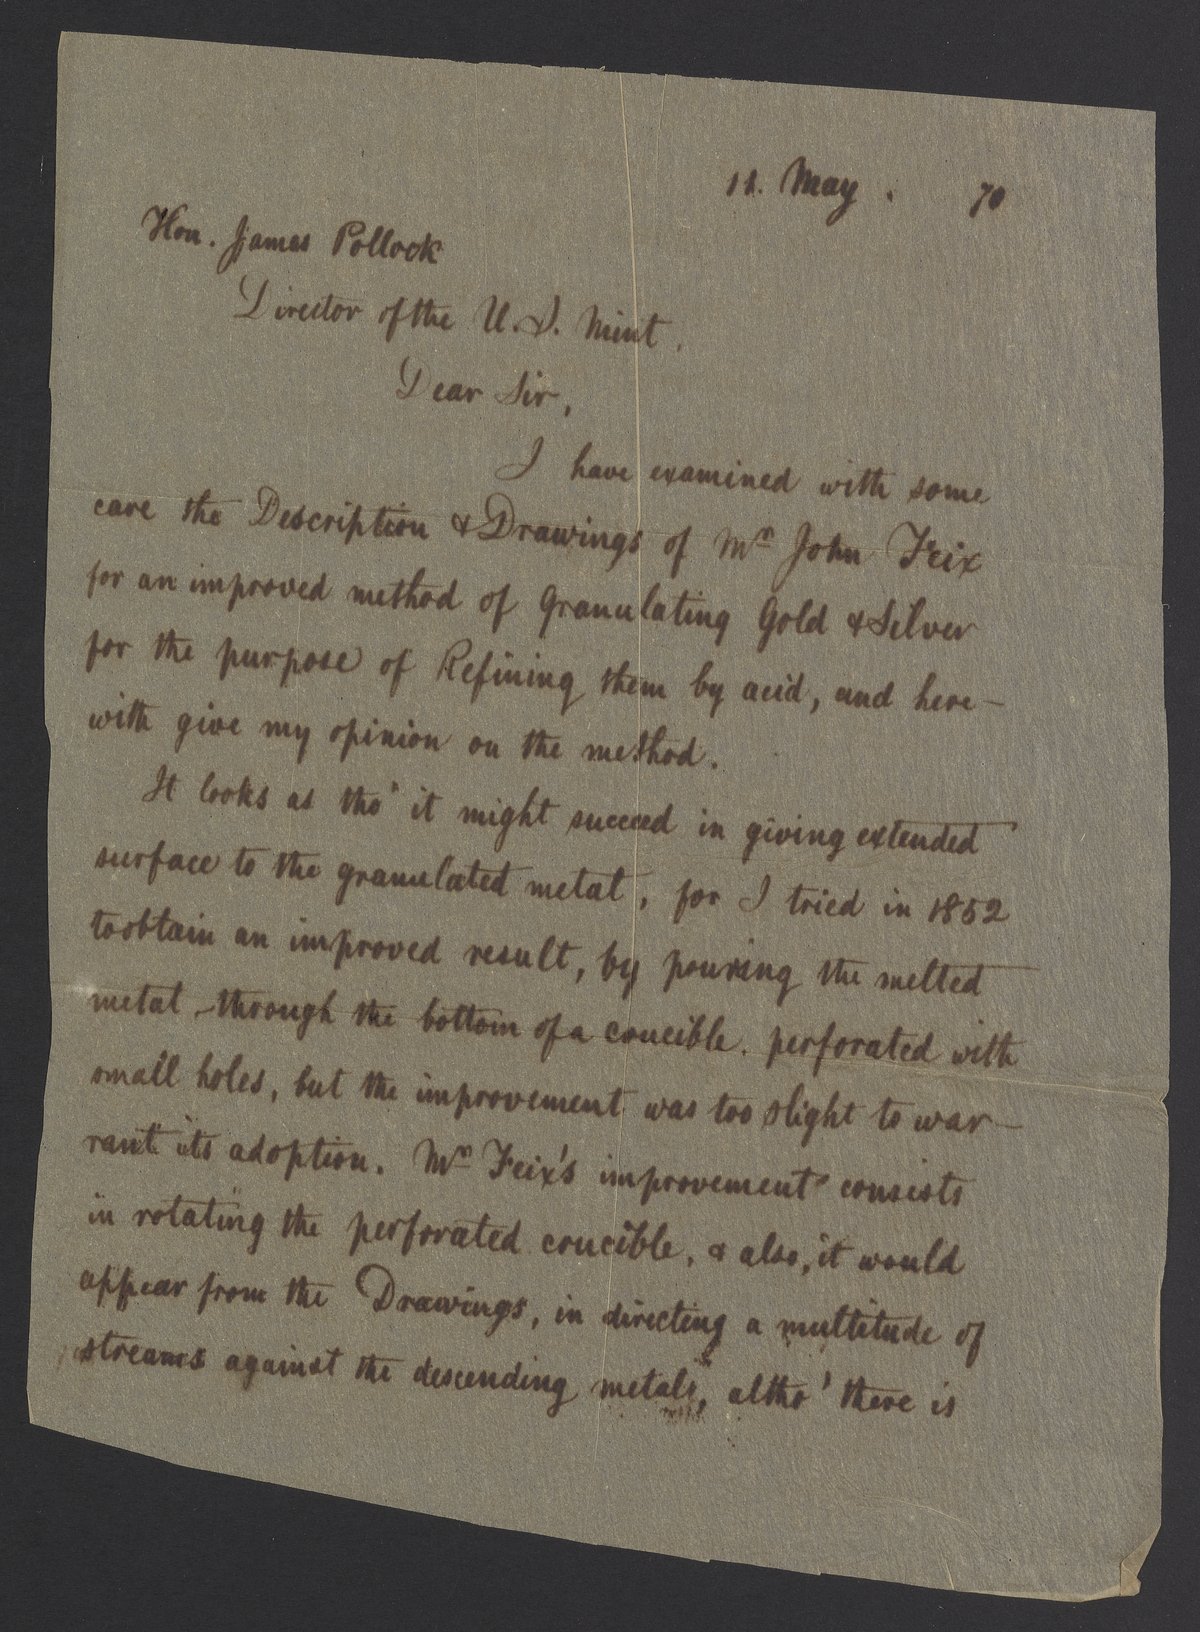 11. May. 70
Hon. James Pollock
Director of the U.S. Mint.
Dear Sir,
I have examined with some
care the Description & Drawings of Mr John Feix
for an improved method of Granulating Gold & Silver
for the purpose of Refining them by acid, and here-
with give my opinion on the method.
It looks as tho' it might succeed in giving extended
surface to the granulated metal, for I tried in 1852
to obtain an improved result, by pouring the melted
metal through the bottom of a crucible. perforated with
small holes, but the improvement was too slight to war-
rant its adoption. Mr Feix's improvement consists
in rotating the perforated crucible, & also, it would
appear from the Drawings, in directing a multitude of
streams against the descending metals, altho' there is